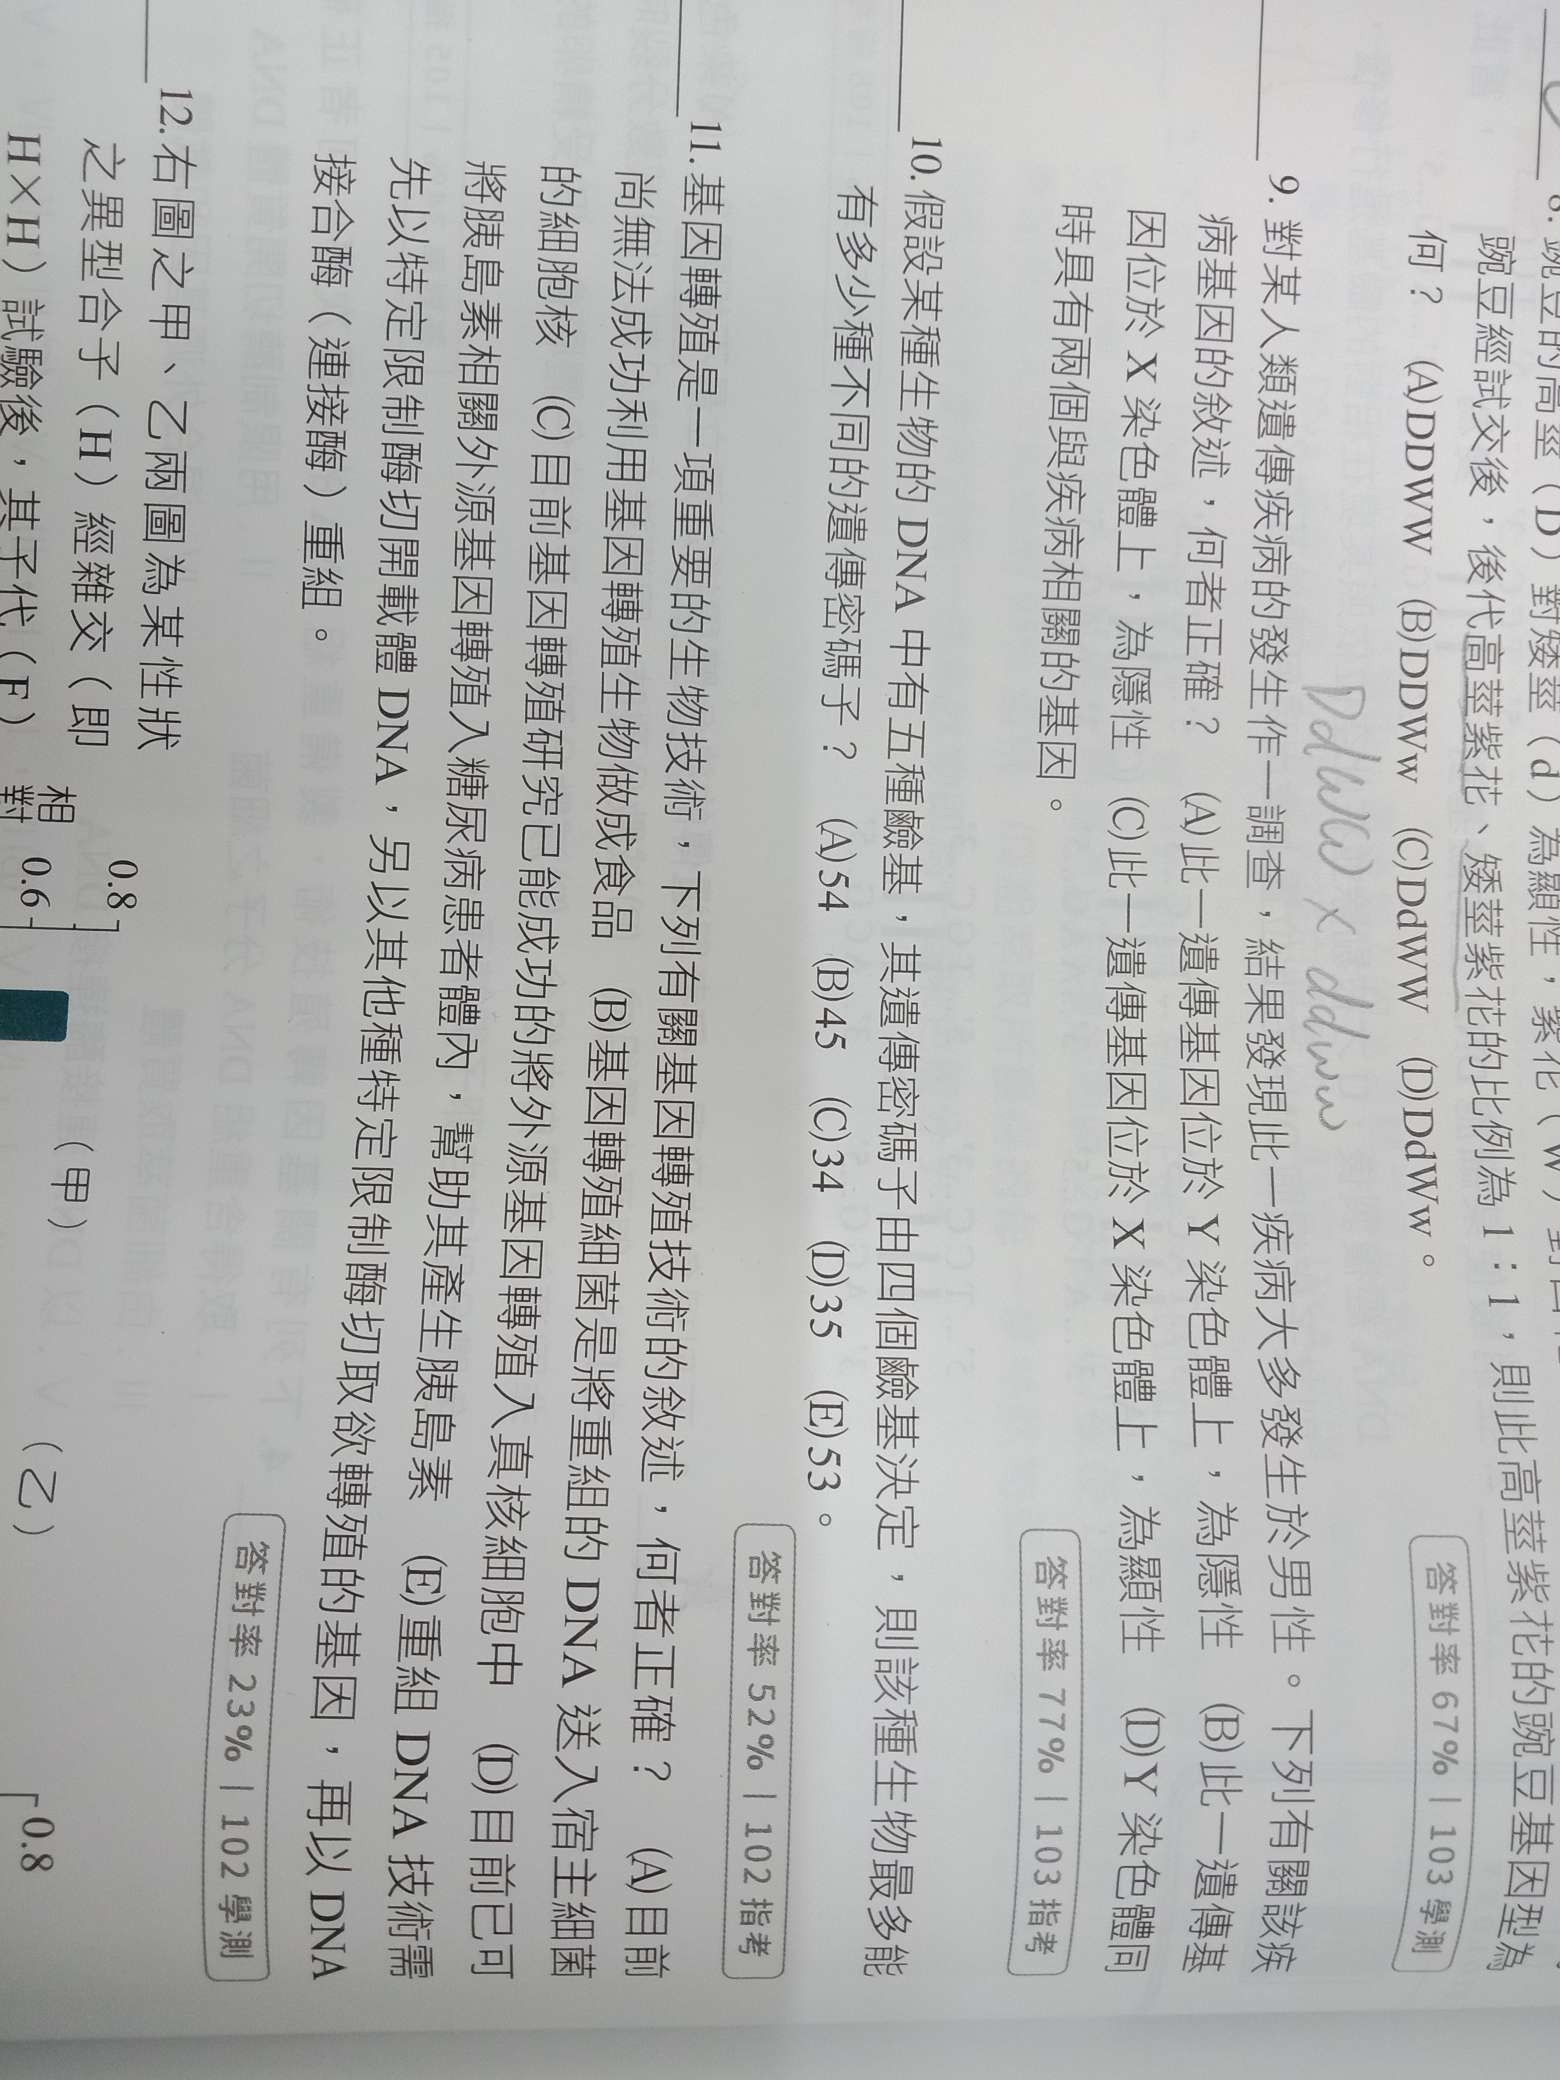 8. 豌豆的高莖（D）對矮莖（d）為顯性，紫花（W）對
豌豆經試交後，後代高莖紫花、矮莖紫花的比例為1：1，則此高莖紫花的豌豆基因型為
何？ (A)DDWW (B)DDWw (C)DdWW (D)DdWw。
答對率 67% | 103 學測
DdWW × ddww
9. 對某人類遺傳疾病的發生作一調查，結果發現此一疾病大多發生於男性。下列有關該疾
病基因的敘述，何者正確？ (A)此一遺傳基因位於 Y 染色體上，為隱性 (B)此一遺傳基
因位於 X 染色體上，為隱性 (C)此一遺傳基因位於 X 染色體上，為顯性 (D)Y 染色體同
時具有兩個與疾病相關的基因。
答對率 77% | 103 指考
10. 假設某種生物的 DNA 中有五種鹼基，其遺傳密碼子由四個鹼基決定，則該種生物最多能
有多少種不同的遺傳密碼子？ (A)54 (B)45 (C)34 (D)35 (E)53。
答對率 52% | 102 指考
11. 基因轉殖是一項重要的生物技術，下列有關基因轉殖技術的敘述，何者正確？ (A)目前
尚無法成功利用基因轉殖生物做成食品 (B)基因轉殖細菌是將重組的 DNA 送入宿主細菌
的細胞核 (C)目前基因轉殖研究已能成功的將外源基因轉殖入真核細胞中 (D)目前已可
將胰島素相關外源基因轉殖入糖尿病患者體內，幫助其產生胰島素 (E)重組 DNA 技術需
先以特定限制酶切開載體 DNA，另以其他種特定限制酶切取欲轉殖的基因，再以 DNA
接合酶（連接酶）重組。
答對率 23% | 102 學測
12. 右圖之甲、乙兩圖為某性狀
之異型合子（H）經雜交（即
H×H）試驗後，其子代（F）
0.8
相
對
0.6
（甲）
（乙）
0.8